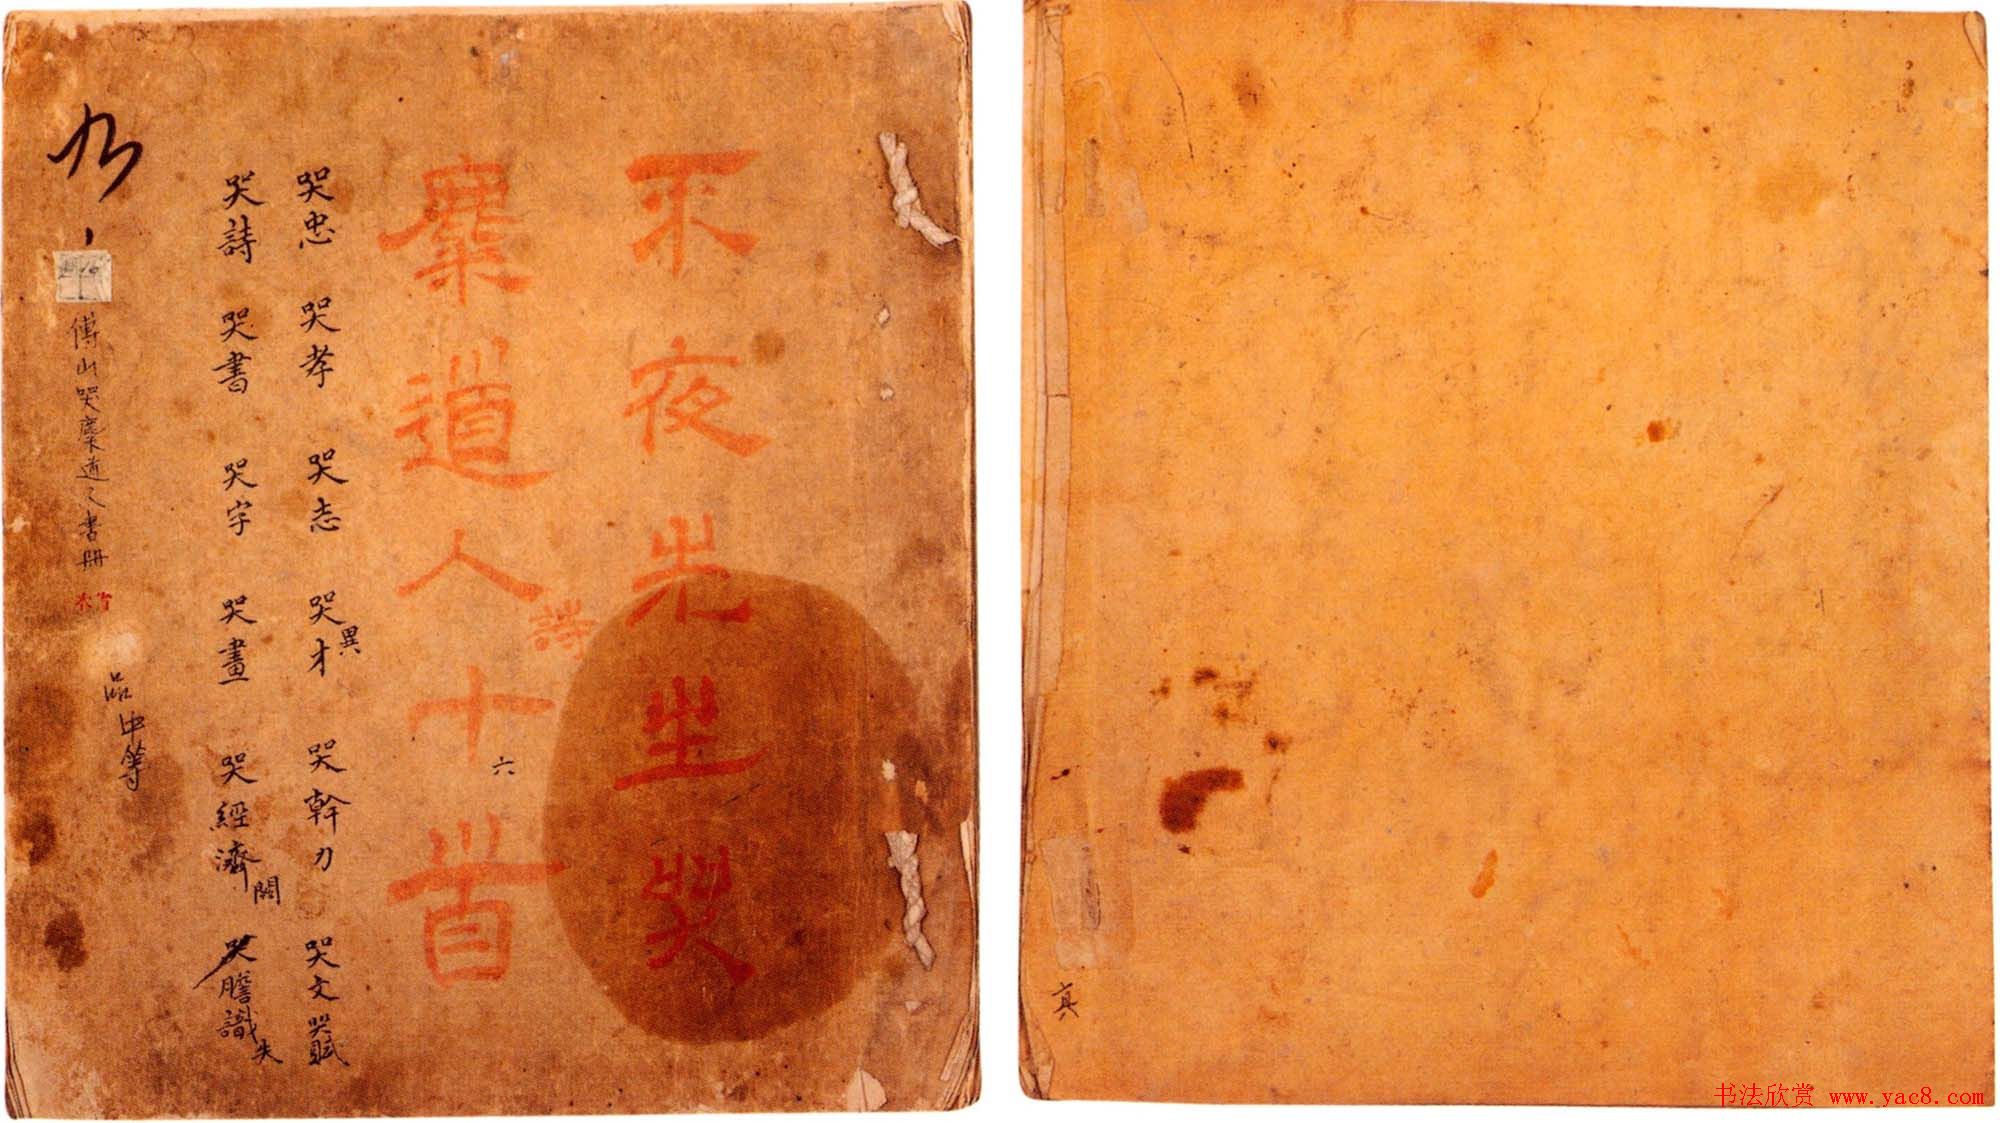 不夜坐哭
麋道人詩十首
六
哭忠 哭孝 哭志 哭才異 哭幹力 哭文 哭賦
哭詩 哭書 哭字 哭畫 哭經濟闕 哭膽識失
傅山哭麋道人書冊
品中等
真
书法欣赏 www.yac8.com